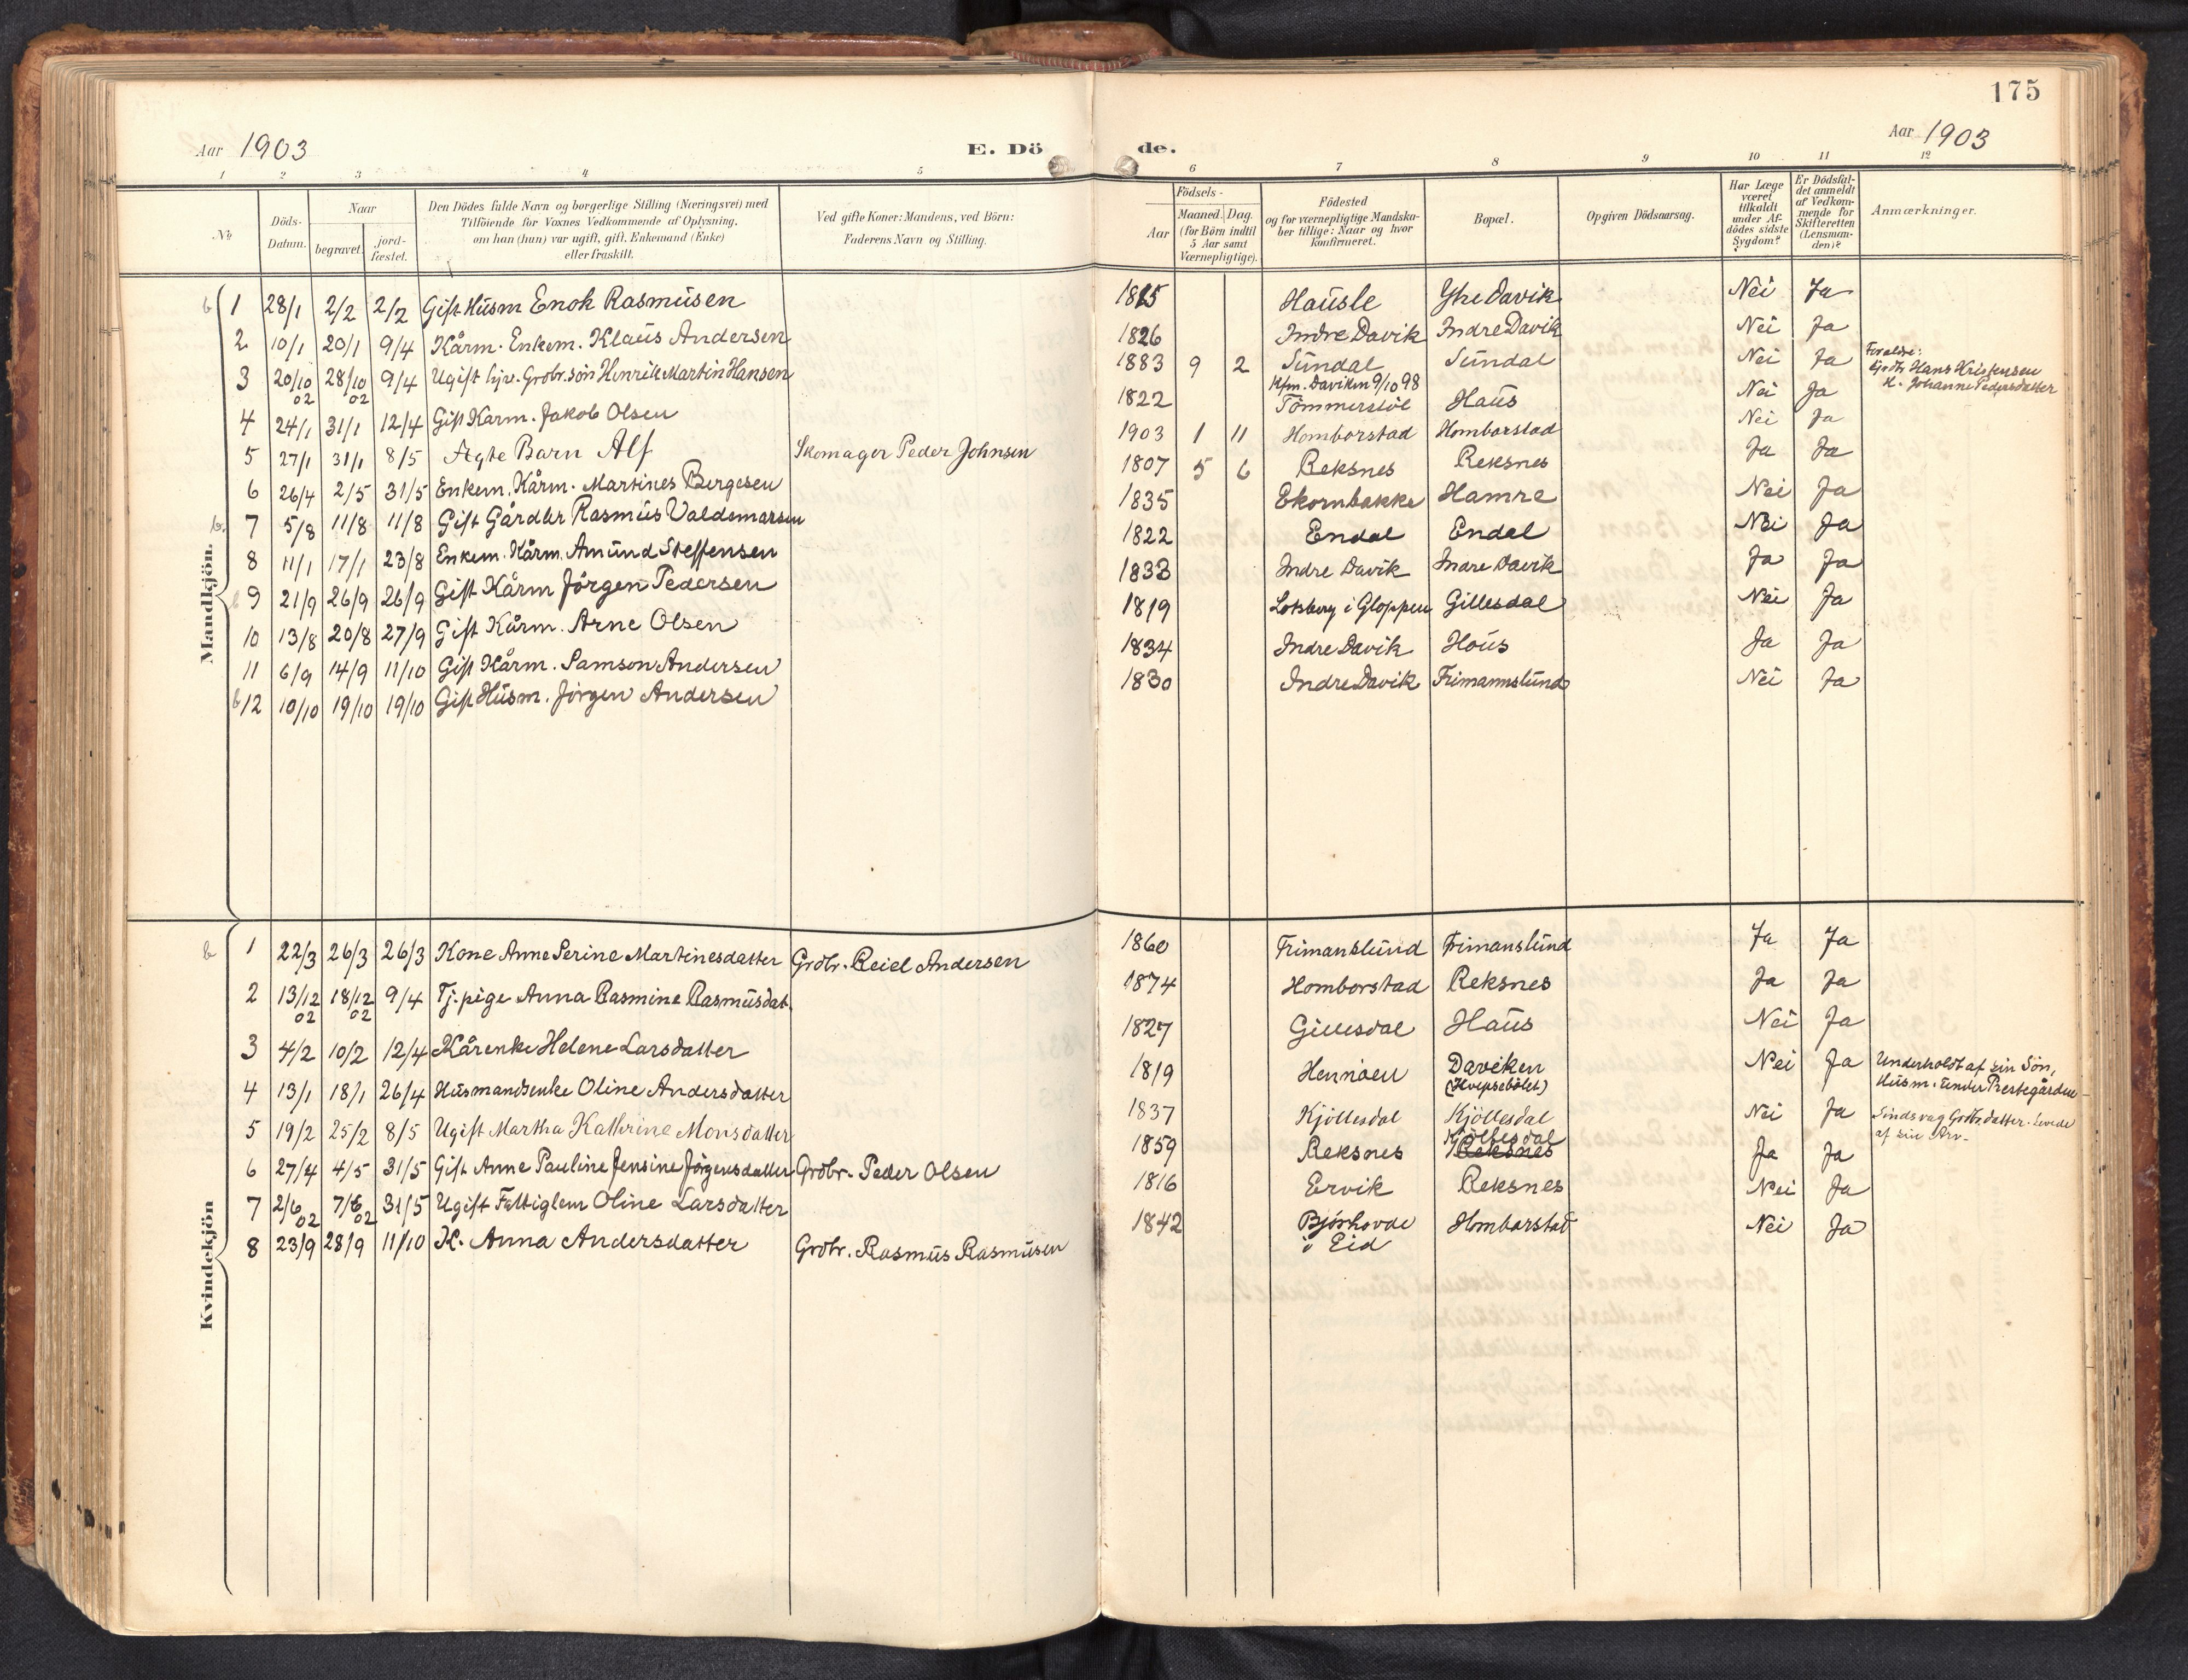 175
Aar 1903 E. Dö de. Aar 1903
1 2 3 4 5 6 7 8 9 10 11 12
No
Döds-Datum.
Naar
begravet.
jord-fæstet.
Den Dödes fulde Navn og borgerlige Stilling (Næringsvei) med
Tilföiende for Voxnes Vedkommende af Oplysning,
om han (hun) var ugift, gift, Enkemand (Enke)
eller fraskilt.
Ved gifte Koner: Mandens, ved Börn:
Faderens Navn og Stilling.
Födsels-
Aar
Maaned. Dag.
(for Börn indtil
5 Aar samt
Værnepligtige).
Födested
og for værnepligtige Mandska-
ber tillige: Naar og hvor
konfirmeret.
Bopæl.
Opgiven Dödsaarsag.
Har Læge
været
tilkaldt
under Af-
dödes sidste
Sygdom?
Er Dödsfal-
det anmeldt
af Vedkom-
mende for
Skifteretten
(Lensman-
den)?
Anmærkninger.
Mandkjön.
b 1 28/1 2/2 2/2 Gift Husm Enok Rasmüsen 1815 Hausle Ytre Davik Nei Ja
2 10/1 20/1 9/4 Kårm. Enkem. Klaüs Andersen 1826 Indre Davik Indre Davik Nei Ja
3 20/10 02 28/10 02 9/4 Ugift hjv. Grdbr. sön Henrik Martin Hansen 1883 9 2 Sündal Kfm. Daviken 9/10 98 Sündal Nei Ja Forældre: Grdbr Hans Kristensen K. Johanne Pedersdatter
4 24/1 31/1 12/4 Gift Karm. Jakob Olsen 1822 Tömmerstöl Haüs Nei Ja
5 27/1 31/1 8/5 Ægte Barn Alf Skomager Peder Johnsen 1903 1 11 Homborstad Homborstad Nei Ja
6 26/4 2/5 31/5 Enkem. Kårm. Martines Bergesen 1807 5 6 Reksnes Reksnes Ja Ja
b. 7 5/8 11/8 11/8 Gift Gårdbr Rasmüs Valdemarsen 1835 Ekornbakke Hamre Nei Ja
8 11/1 17/1 23/8 Enkem. Kårm. Amünd Steffensen 1822 Endal Endal Nei Ja
b 9 21/9 26/9 26/9 Gift Kårm Jörgen Pedersen 1833 Indre Davik Indre Davik Ja Ja
10 13/8 20/8 27/9 Gift Kårm. Arne Olsen 1819 Lotsberg i Gloppen Gillesdal Nei Ja
11 6/9 14/9 11/10 Gift Kårm. Samson Andersen 1834 Indre Davik Hoüs Ja Ja
b 12 10/10 19/10 19/10 Gift Hüsm. Jörgen Andersen 1830 Indre Davik Frimannslünd Nei Ja
Kvindekjön
b 1 22/3 26/3 26/3 Kone Anne Serine Martinesdatter Grdbr. Reiel Andersen 1860 Frimanslünd Frimanslünd Ja Ja
2 13/12 02 18/12 02 9/4 Tj. pige Anna Rasmine Rasmüsdat. 1874 Homborstad Reksnes Ja Ja
3 4/2 10/2 12/4 Kårenke Helene Larsdatter 1827 Gillesdal Haüs Nei Ja
4 13/1 18/1 26/4 Hüsmandsenke Oline Andersdatter 1819 Hennöen Daviken (Hvepsebölet) Nei Ja Underholdt af sin Sön, Hüsm. ünder Prestegården
5 19/2 25/2 8/5 Ugift Martha Kathrine Monsdatter 1837 Kjöllesdal Kjöllesdal Nei Ja Sindsvag Grdbr. datter. Levede af sin Arv-
6 27/4 4/5 31/5 Gift Anne Pauline Jensine Jörgensdatter Grdbr. Peder Olsen 1859 Reksnes Kjöllesdal Reksnes Ja Ja
7 2/6 02 7/6 02 31/5 Ugift Fattiglem Oline Larsdatter 1816 Ervik Reksnes Nei Ja
8 23/9 28/9 11/10 K. Anna Andersdatter Grdbr. Rasmüs Rasmüsen 1842 Bjórhovde i Eid Hombarstad Nei Ja